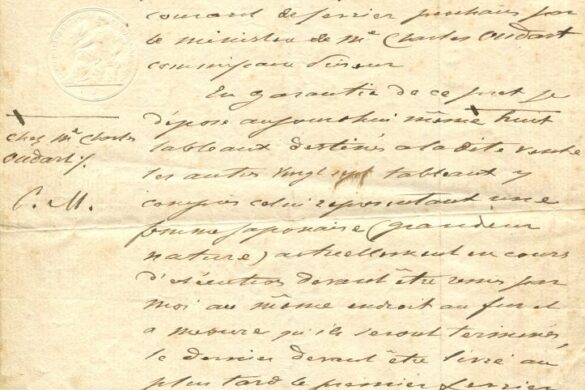 courant de février prochain par
le ministère de Me Charles Oudart
commissaire priseur
En garantie de ce prêt je
dépose aujourd'hui même huit
tableaux destinés a la dite vente
les autres vingt sept tableaux y
compris celui représentant une
femme Japonaise (grandeur
nature) actuellement en cours
d'exécution devant être remis par
moi au même endroit au fur et
a mesure qu'ils seront terminés,
le dernier devant être livré au
plus tard le premier février
chez Me Charles
Oudart /.
C. M.